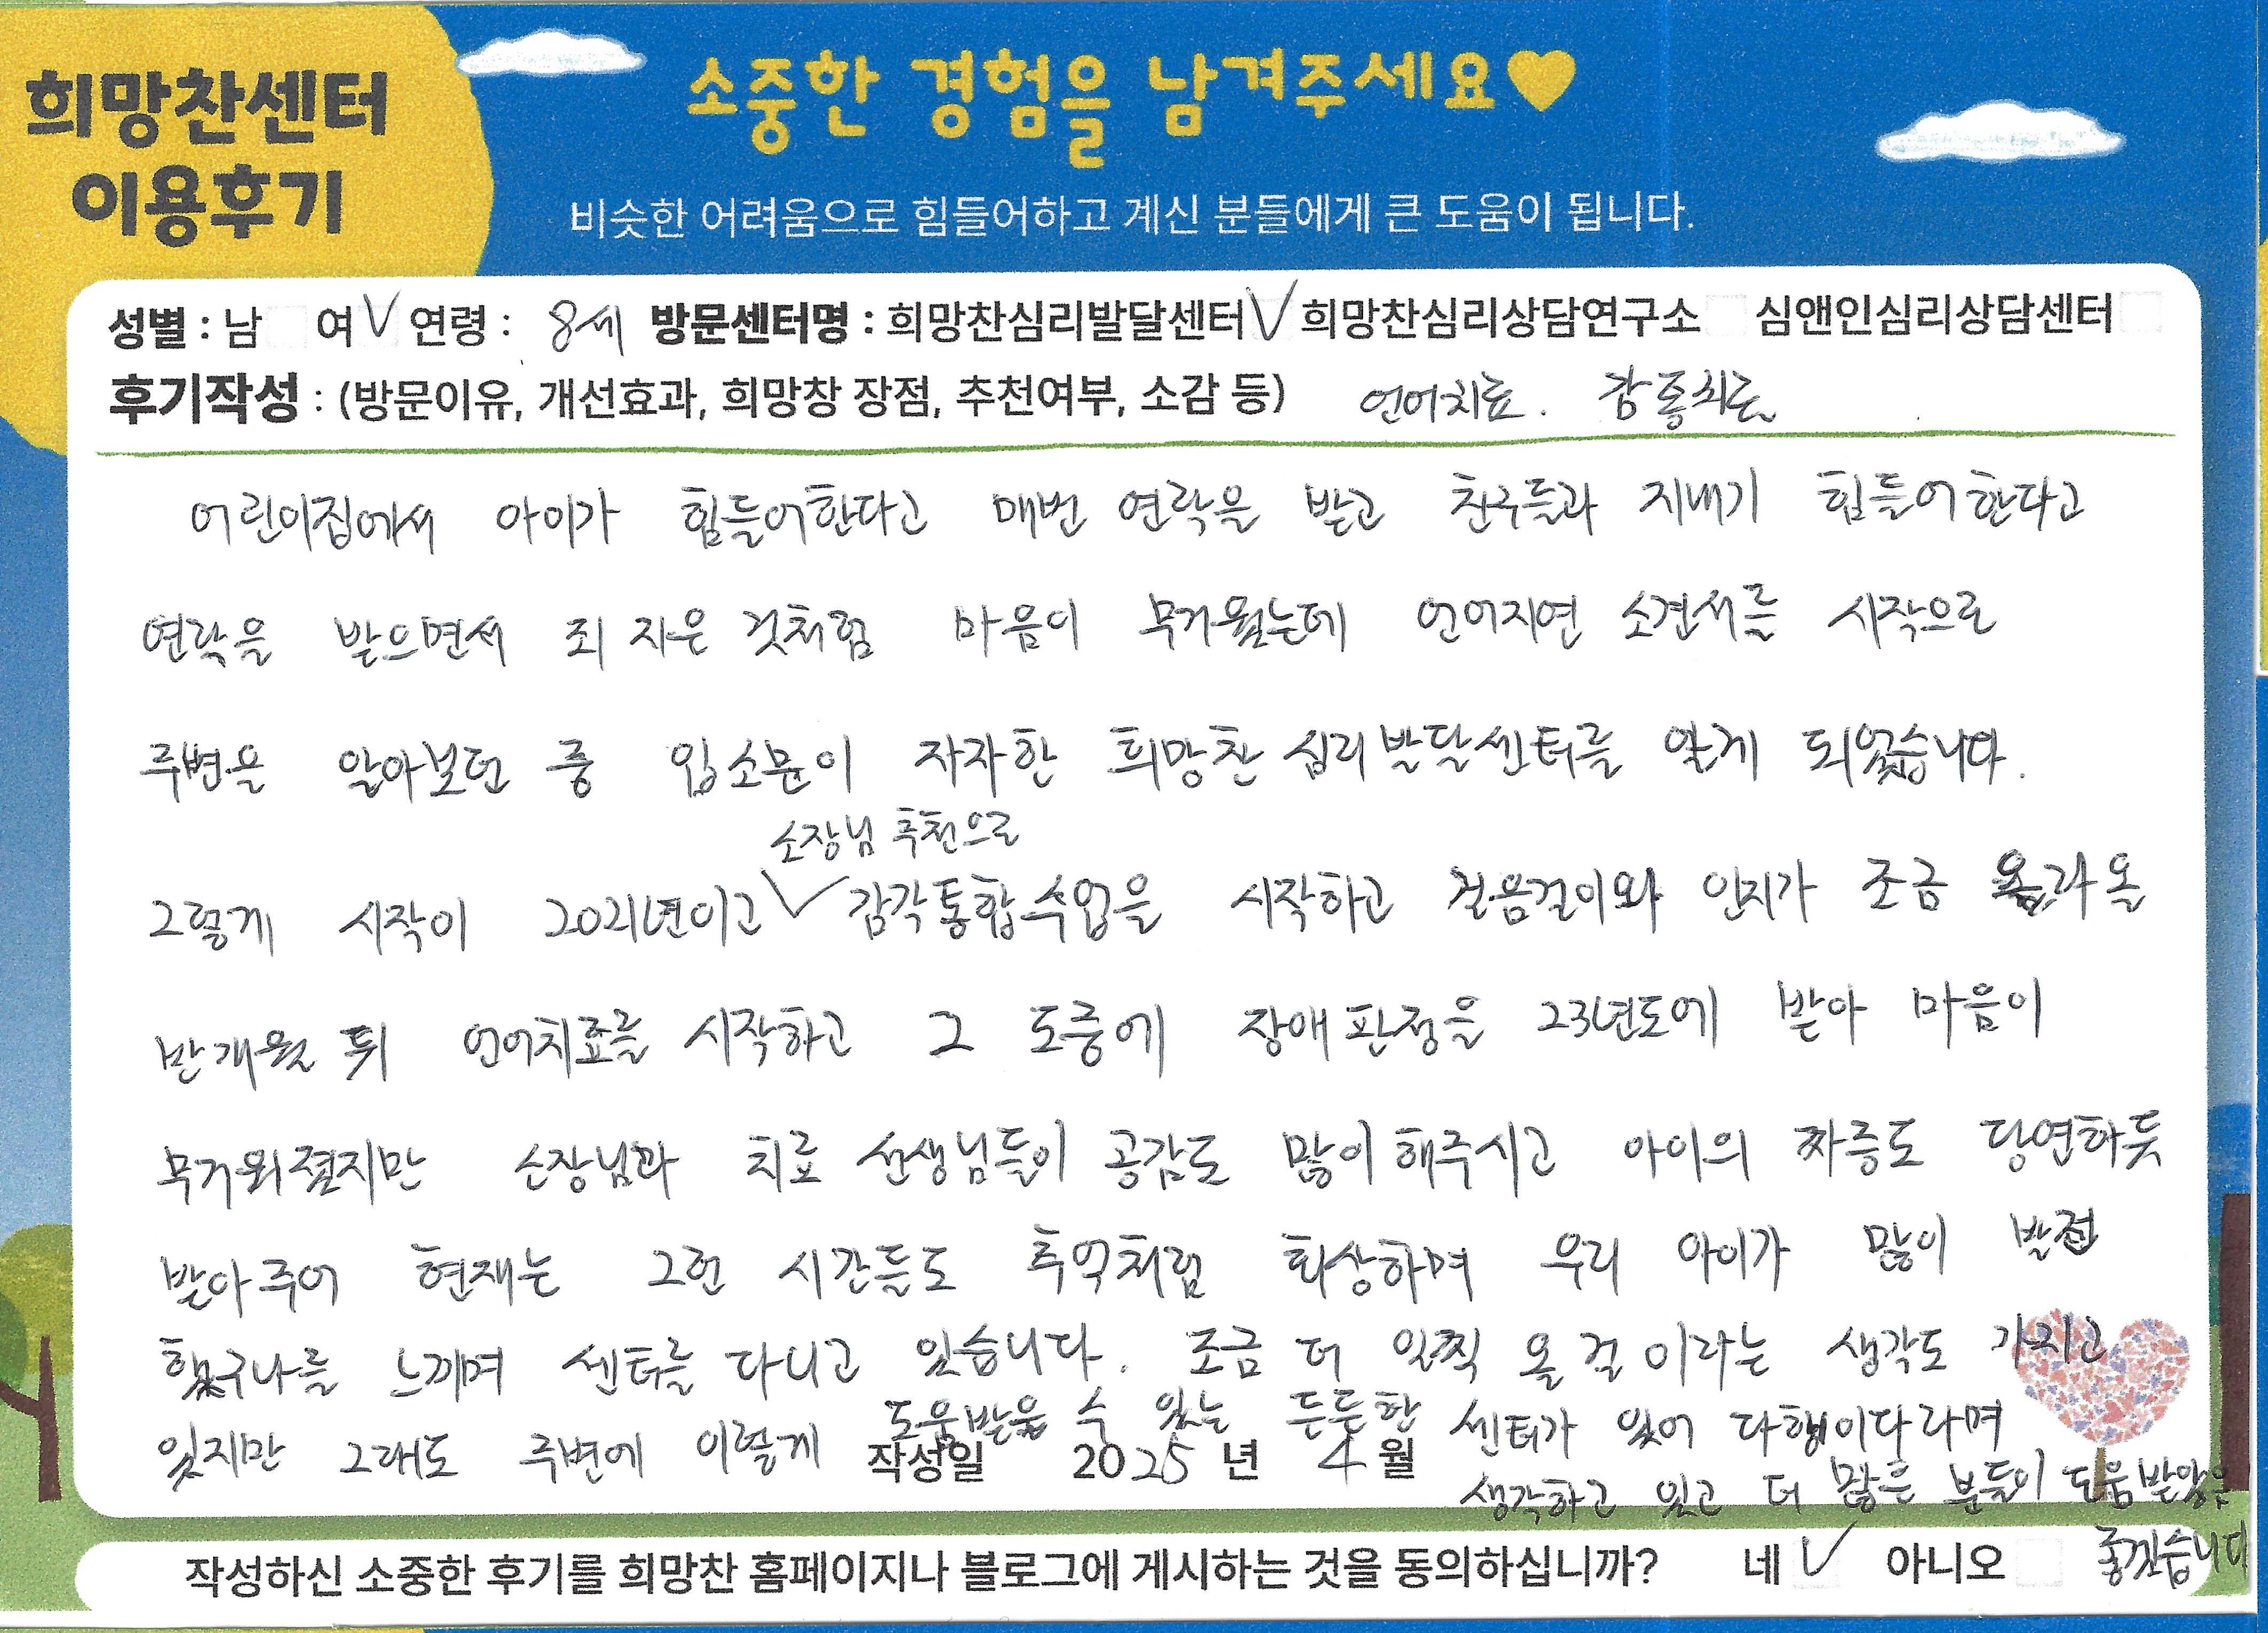 희망찬센터
이용후기
소중한 경험을 남겨주세요♥
비슷한 어려움으로 힘들어하고 계신 분들에게 큰 도움이 됩니다.
성별 : 남 여 ✓ 연령 : 8세 방문센터명 : 희망찬심리발달센터 ✓ 희망찬심리상담연구소 심앤인심리상담센터
후기작성 : (방문이유, 개선효과, 희망창 장점, 추천여부, 소감 등) 언어치료. 감통치료
어린이집에서 아이가 힘들어한다고 매번 연락을 받고 친구들과 지내기 힘들어한다고
연락을 받으면서 죄 지은 것처럼 마음이 무거웠는데 언어지연 소견서를 시작으로
주변을 알아보던 중 입소문이 자자한 희망찬 심리발달센터를 알게 되었습니다.
소장님 추천으로
그렇게 시작이 2021년이고 ✓ 감각통합수업을 시작하고 걸음걸이와 인지가 조금 올라올
반개월 뒤 언어치료를 시작하고 그 도중에 장애판정을 23년도에 받아 마음이
무거워졌지만 소장님과 치료 선생님들이 공감도 많이 해주시고 아이의 짜증도 당연하듯
받아주어 현재는 그런 시간들도 추억처럼 회상하며 우리 아이가 많이 발전
했구나를 느끼며 센터를 다니고 있습니다. 조금 더 일찍 올 걸 이라는 생각도 가지고
있지만 그래도 주변에 이렇게 도움받을 수 있는 든든한 센터가 있어 다행이다라며
작성일 2025 년 4 월
생각하고 있고 더 많은 분들이 도움받았음
좋겠습니다
작성하신 소중한 후기를 희망찬 홈페이지나 블로그에 게시하는 것을 동의하십니까? 네 ✓ 아니오